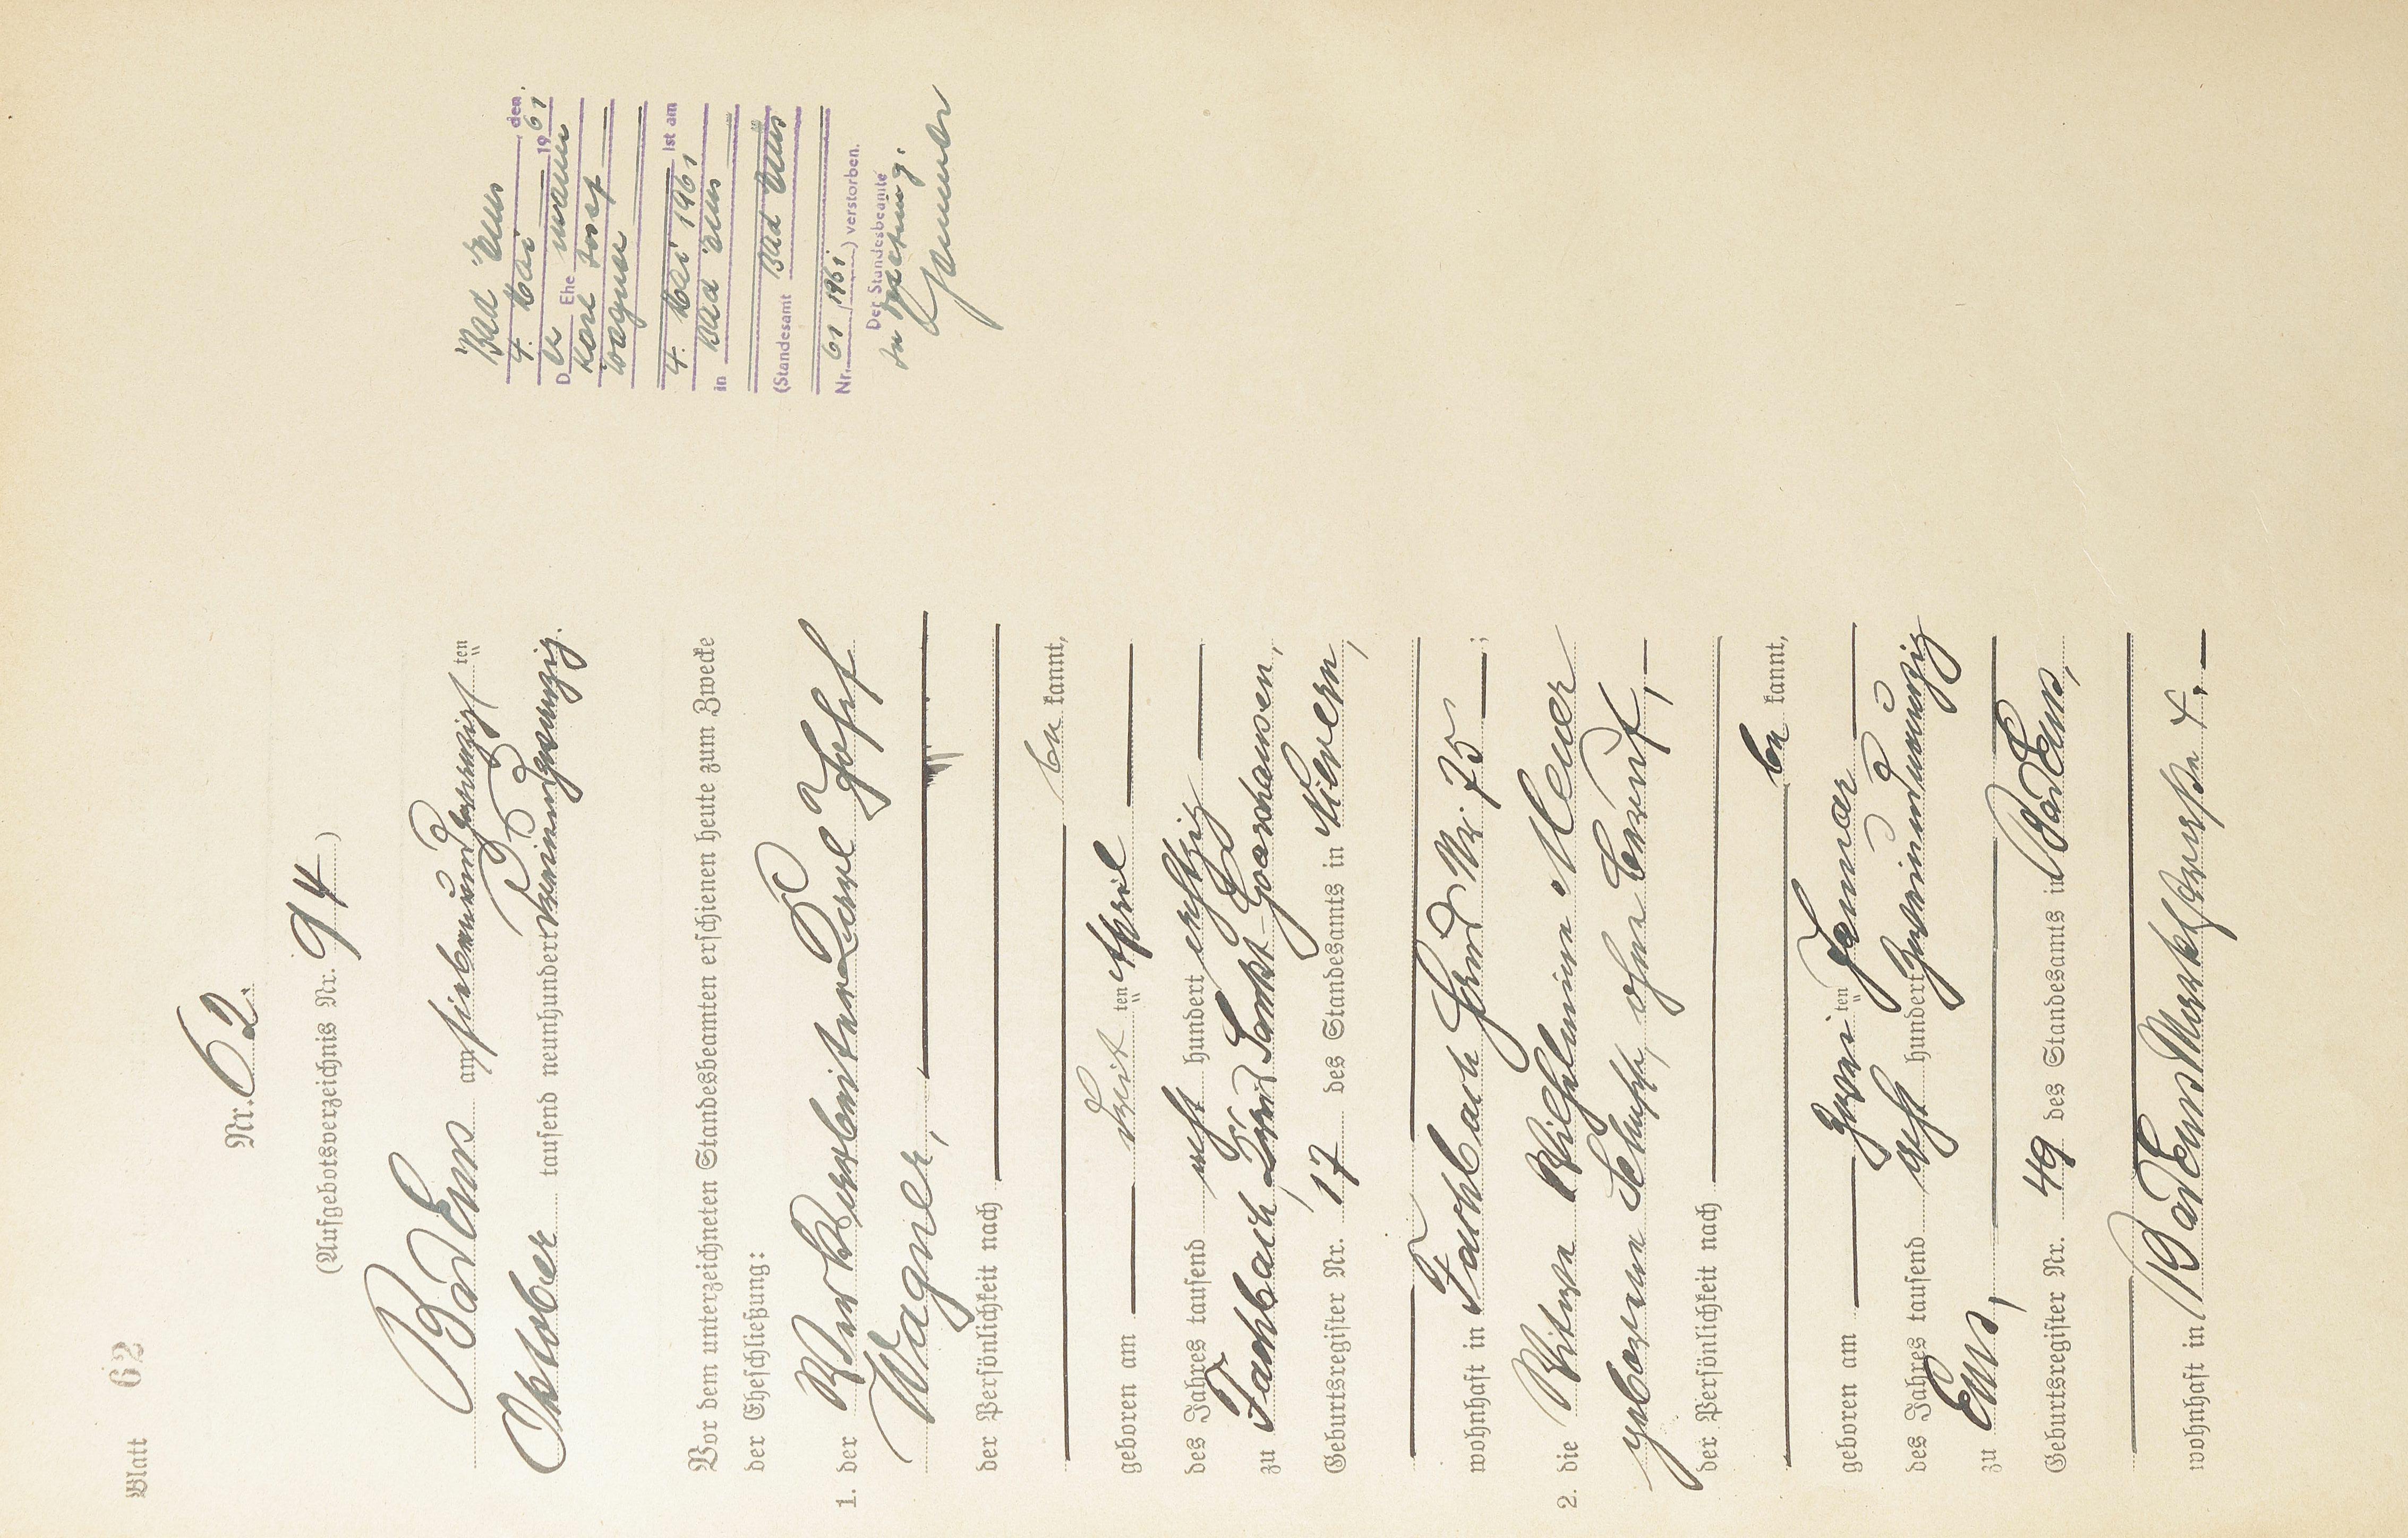 Blatt 62
Nr. 62.
(Aufgebotsverzeichnis Nr. 94)
Bad Ems am siebenundzwanzigsten
Oktober tausend neunhundert
Vor dem unterzeichneten Standesbeamten erschienen heute zum Zwecke
der Eheschließung:
1. der Karl Josef
Wagner,
der Persönlichkeit nach
be kannt,
geboren am ten April
des Jahres tausend acht hundert achtzig
zu Fachbach, Kreis Sankt-Goarshausen,
Geburtsregister Nr. 17 des Standesamts in Nievern,
wohnhaft in Fachbach Haus Nr. 75;
2. die Witwe Wilhelmine Meuer
geborene ohne Beruf,
der Persönlichkeit nach
be kannt,
geboren am zwei ten Januar
des Jahres tausend acht hundert zweiundneunzig
zu Ems,
Geburtsregister Nr. 49 des Standesamts in Bad Ems,
wohnhaft in Bad Ems Marktstraße 4.
Bad Ems, den
4. Mai 1961
D Ehemann
Karl Josef
Wagner
ist am
4. Mai 1961
in Bad Ems
(Standesamt Bad Ems
Nr. 61/1961) verstorben.
Der Standesbeamte
In Vertretung.